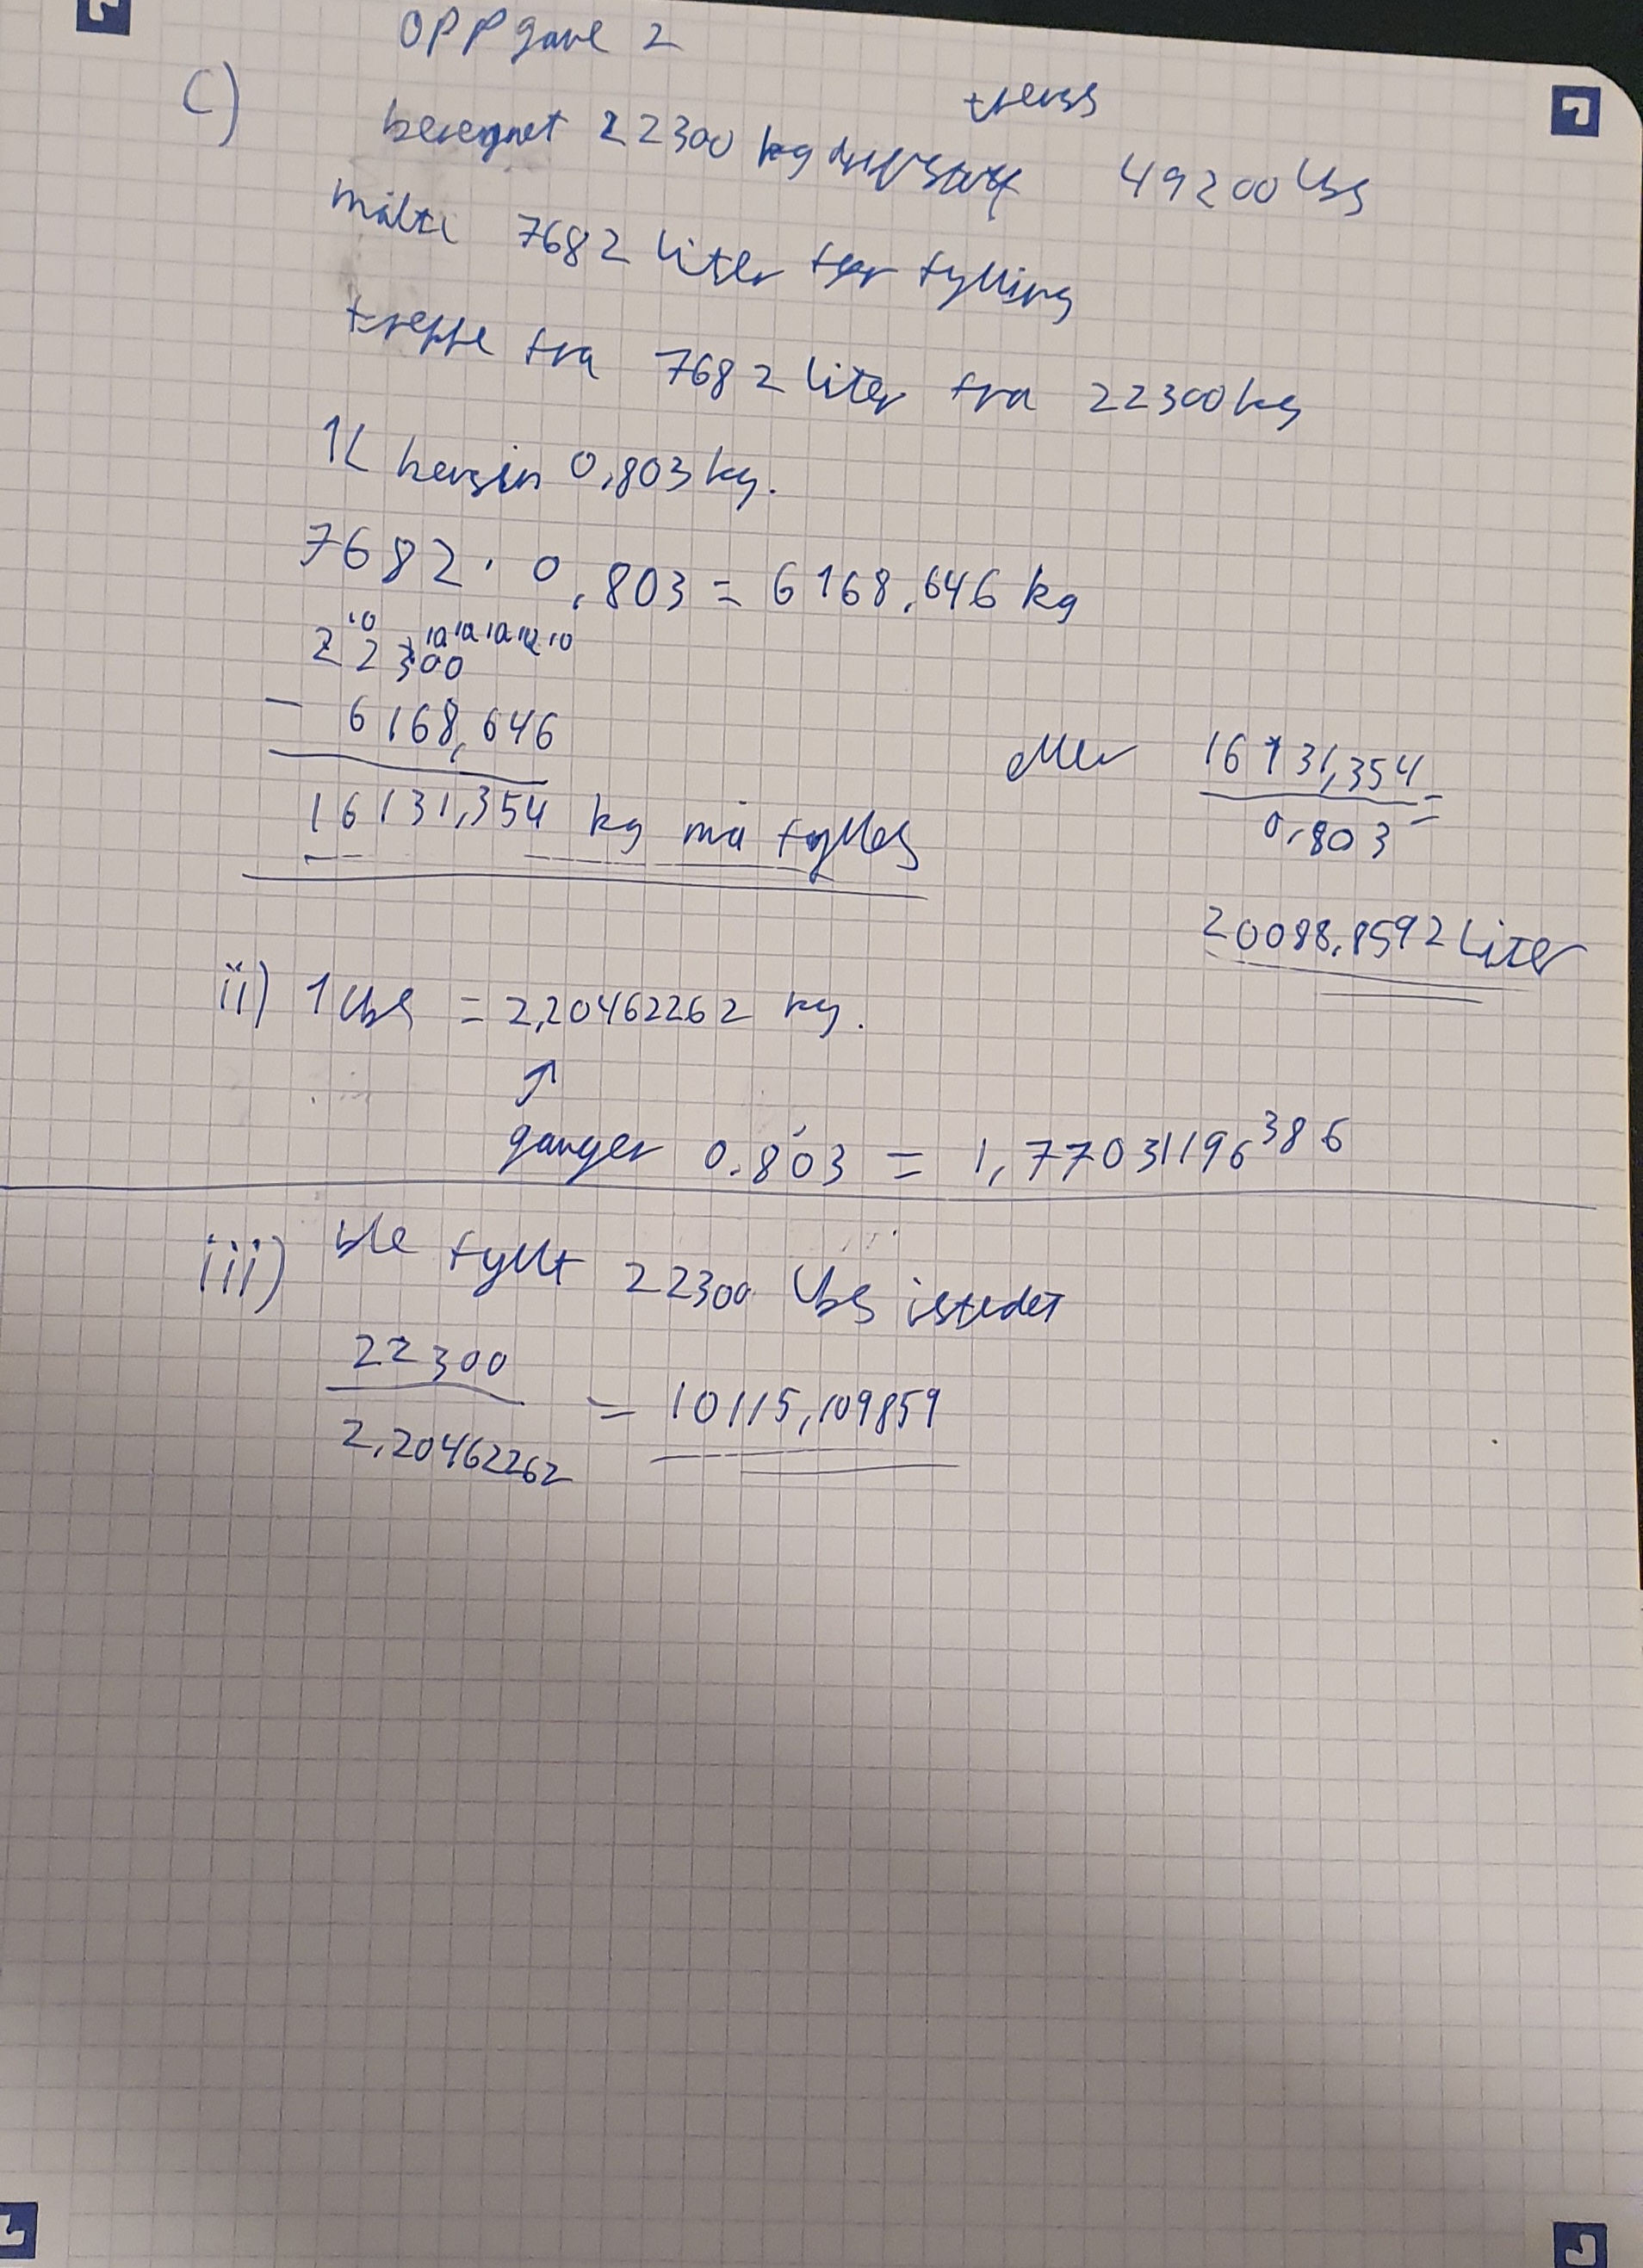 Oppgave 2
c)
trengs
beregnet 22300 kg drivstoff 49200 lbs
målte 7682 liter før fylling
trekke fra 7682 liter fra 22300kg
1L bensin 0,803 kg.
7682 · 0,803 = 6168,646 kg
10 10 10 10 10 10
22300
- 6168,646
16131,354 kg må fylles
eller 16131,354 =
0,803
20088,8592 Liter
ii) 1 lbs = 2,20462262 kg.
↑
ganger 0,803 = 1,77031196386
iii) ble fyllt 22300 lbs istedet
22300
2,20462262
= 10115,109859